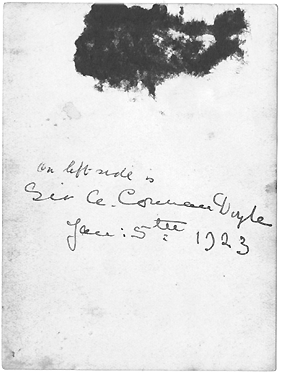 on left side is
Sir A. Connan Doyle
Jan: 5th 1923